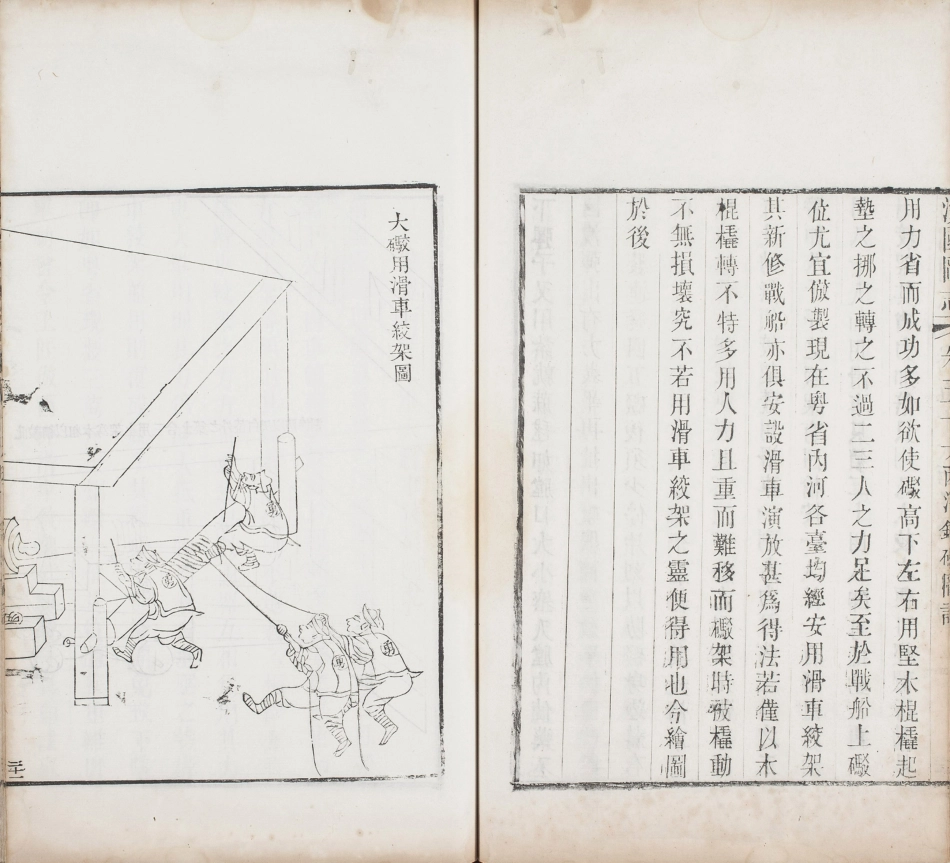 用力省而成功多如欲使礮高下左右用堅木棍橇起
墊之挪之轉之不過二三人之力足矣至於戰船上礮
位尤宜倣製現在粵省內河各臺均經安用滑車絞架
其新修戰船亦俱安設滑車演放甚爲得法若僅以木
棍橇轉不特多用人力且重而難移而礮架時被橇動
不無損壞究不若用滑車絞架之靈便得用也今繪圖
於後
大礮用滑車絞架圖